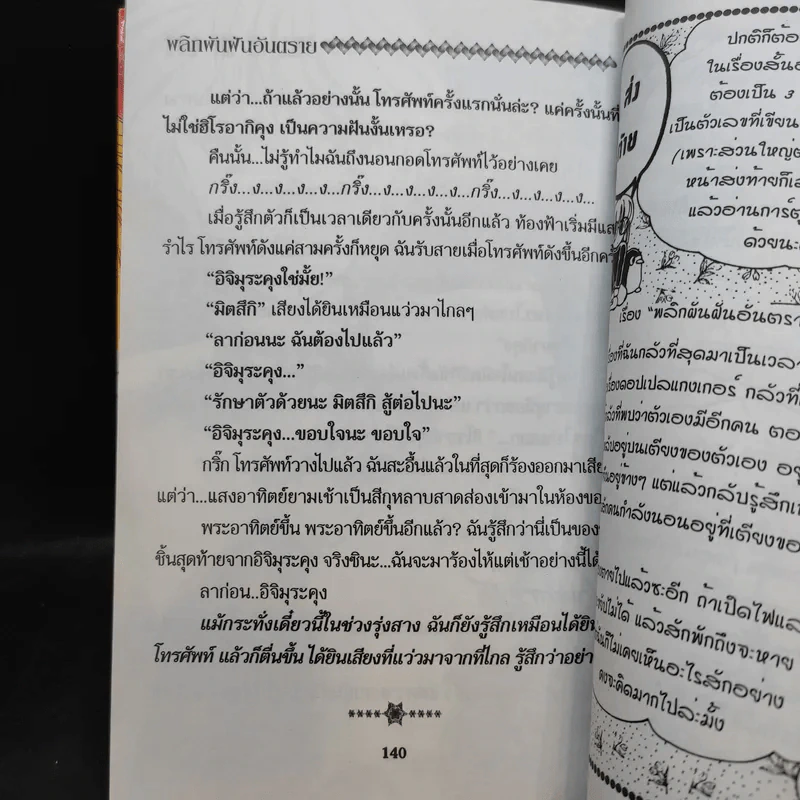 พลิกผันฝันอันตราย
แต่ว่า...ถ้าแล้วอย่างนั้น โทรศัพท์ครั้งแรกนั่นล่ะ? แค่ครั้งนั้นที่
ไม่ใช่ฮิโรอากิคุง เป็นความฝันงั้นเหรอ?
คืนนั้น...ไม่รู้ทำไมฉันถึงนอนกอดโทรศัพท์ไว้อย่างเคย
กริ๊ง...ง...ง...ง...ง...กริ๊ง...ง...ง...ง...ง...กริ๊ง...ง...ง...ง...ง...
เมื่อรู้สึกตัวก็เป็นเวลาเดียวกับครั้งนั้นอีกแล้ว ท้องฟ้าเริ่มมีแสง
รำไร โทรศัพท์ดังแค่สามครั้งก็หยุด ฉันรับสายเมื่อโทรศัพท์ดังขึ้นอีก
“อิจิมุระคุงใช่มั้ย!”
“มิตสึกิ” เสียงได้ยินเหมือนแว่วมาไกลๆ
“ลาก่อนนะ ฉันต้องไปแล้ว”
“อิจิมุระคุง...”
“รักษาตัวด้วยนะ มิตสึกิ สู้ต่อไปนะ”
“อิจิมุระคุง...ขอบใจนะ ขอบใจ”
กริ๊ก โทรศัพท์วางไปแล้ว ฉันสะอื้นแล้วในที่สุดก็ร้องออกมา
แต่ว่า...แสงอาทิตย์ยามเช้าเป็นสีกุหลาบสาดส่องเข้ามาในห้อง
พระอาทิตย์ขึ้น พระอาทิตย์ขึ้นอีกแล้ว? ฉันรู้สึกว่านี่เป็นของ
ชิ้นสุดท้ายจากอิจิมุระคุง จริงซินะ...ฉันจะมาร้องไห้แต่เช้าอย่างนี้ได้
ลาก่อน..อิจิมุระคุง
แม้กระทั่งเดี๋ยวนี้ในช่วงรุ่งสาง ฉันก็ยังรู้สึกเหมือนได้ยิน
โทรศัพท์ แล้วก็ตื่นขึ้น ได้ยินเสียงที่แว่วมาจากที่ไกล รู้สึกว่าอย่า
140
ส่ง
ท้าย
ปกติก็ต้อ
ในเรื่องสั้น
ต้องเป็น 3
เป็นตัวเลขที่เขียน
(เพราะส่วนใหญ่
หน้าส่งท้ายก็
แล้วอ่านการ์ตู
ด้วยนะ
เรื่อง “พลิกผันฝันอันตรา
ที่ฉันกลัวที่สุดมาเป็นเวลา
ดอปเปลแกงเกอร์ กลัวที่
ที่พบว่าตัวเองมีอีกคน ตอ
อยู่บนเตียงของตัวเอง อยู่
อยู่ข้างๆ แต่แล้วกลับรู้สึก
กำลังนอนอยู่ที่เตียงขอ
หายไปแล้วซะอีก ถ้าเปิดไฟแล
ไม่ได้ แล้วสักพักถึงจะหาย
ก็ไม่เคยเห็นอะไรสักอย่าง
คงจะคิดมากไปล่ะมั้ง